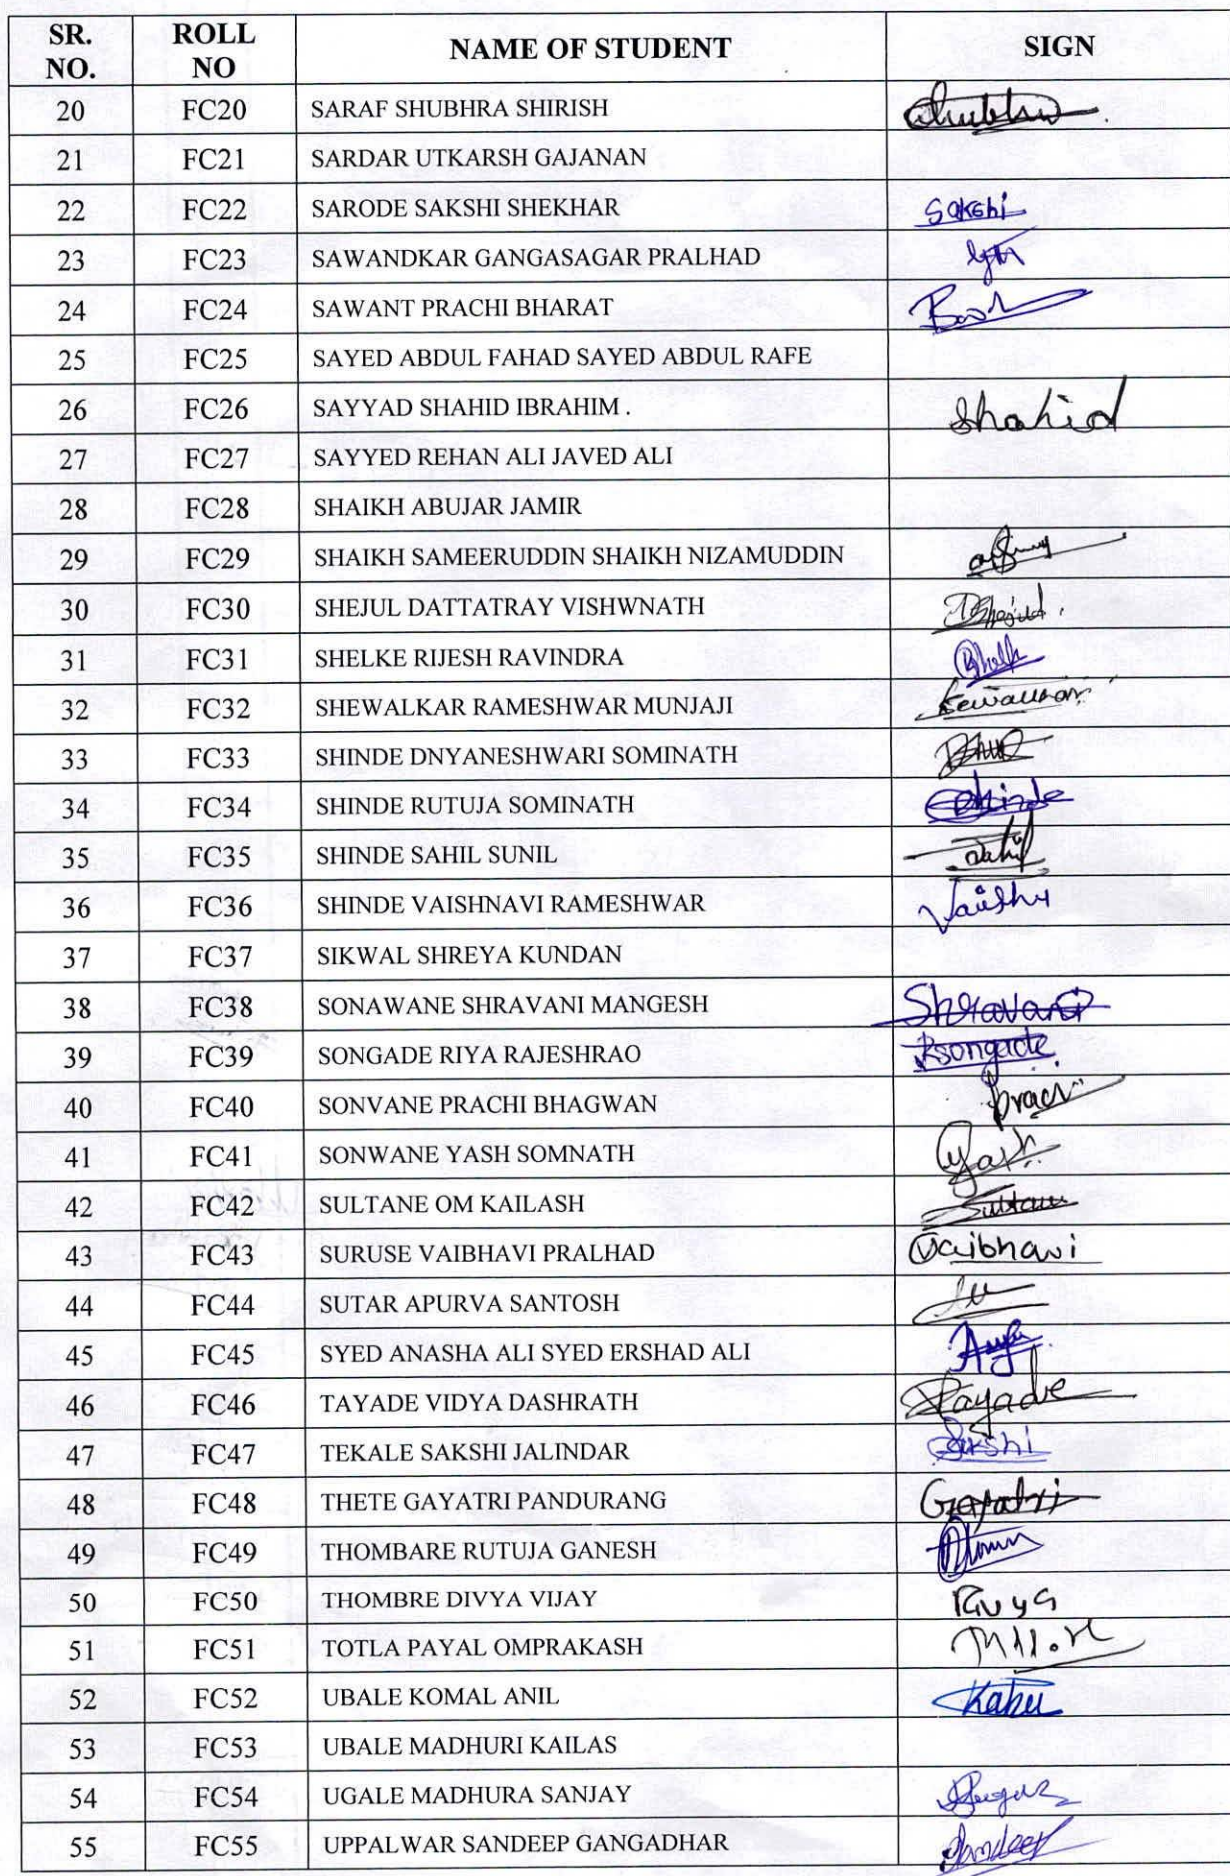 SR. NO. ROLL NO NAME OF STUDENT SIGN
20 FC20 SARAF SHUBHRA SHIRISH
21 FC21 SARDAR UTKARSH GAJANAN
22 FC22 SARODE SAKSHI SHEKHAR Sakshi
23 FC23 SAWANDKAR GANGASAGAR PRALHAD
24 FC24 SAWANT PRACHI BHARAT
25 FC25 SAYED ABDUL FAHAD SAYED ABDUL RAFE
26 FC26 SAYYAD SHAHID IBRAHIM . Shahid
27 FC27 SAYYED REHAN ALI JAVED ALI
28 FC28 SHAIKH ABUJAR JAMIR
29 FC29 SHAIKH SAMEERUDDIN SHAIKH NIZAMUDDIN
30 FC30 SHEJUL DATTATRAY VISHWNATH
31 FC31 SHELKE RIJESH RAVINDRA
32 FC32 SHEWALKAR RAMESHWAR MUNJAJI
33 FC33 SHINDE DNYANESHWARI SOMINATH
34 FC34 SHINDE RUTUJA SOMINATH
35 FC35 SHINDE SAHIL SUNIL
36 FC36 SHINDE VAISHNAVI RAMESHWAR
37 FC37 SIKWAL SHREYA KUNDAN
38 FC38 SONAWANE SHRAVANI MANGESH Shravani
39 FC39 SONGADE RIYA RAJESHRAO Rsongade
40 FC40 SONVANE PRACHI BHAGWAN
41 FC41 SONWANE YASH SOMNATH Yash
42 FC42 SULTANE OM KAILASH
43 FC43 SURUSE VAIBHAVI PRALHAD Vaibhavi
44 FC44 SUTAR APURVA SANTOSH
45 FC45 SYED ANASHA ALI SYED ERSHAD ALI
46 FC46 TAYADE VIDYA DASHRATH Tayade
47 FC47 TEKALE SAKSHI JALINDAR Sakshi
48 FC48 THETE GAYATRI PANDURANG Gayatri
49 FC49 THOMBARE RUTUJA GANESH
50 FC50 THOMBRE DIVYA VIJAY
51 FC51 TOTLA PAYAL OMPRAKASH
52 FC52 UBALE KOMAL ANIL
53 FC53 UBALE MADHURI KAILAS
54 FC54 UGALE MADHURA SANJAY
55 FC55 UPPALWAR SANDEEP GANGADHAR Sandeep